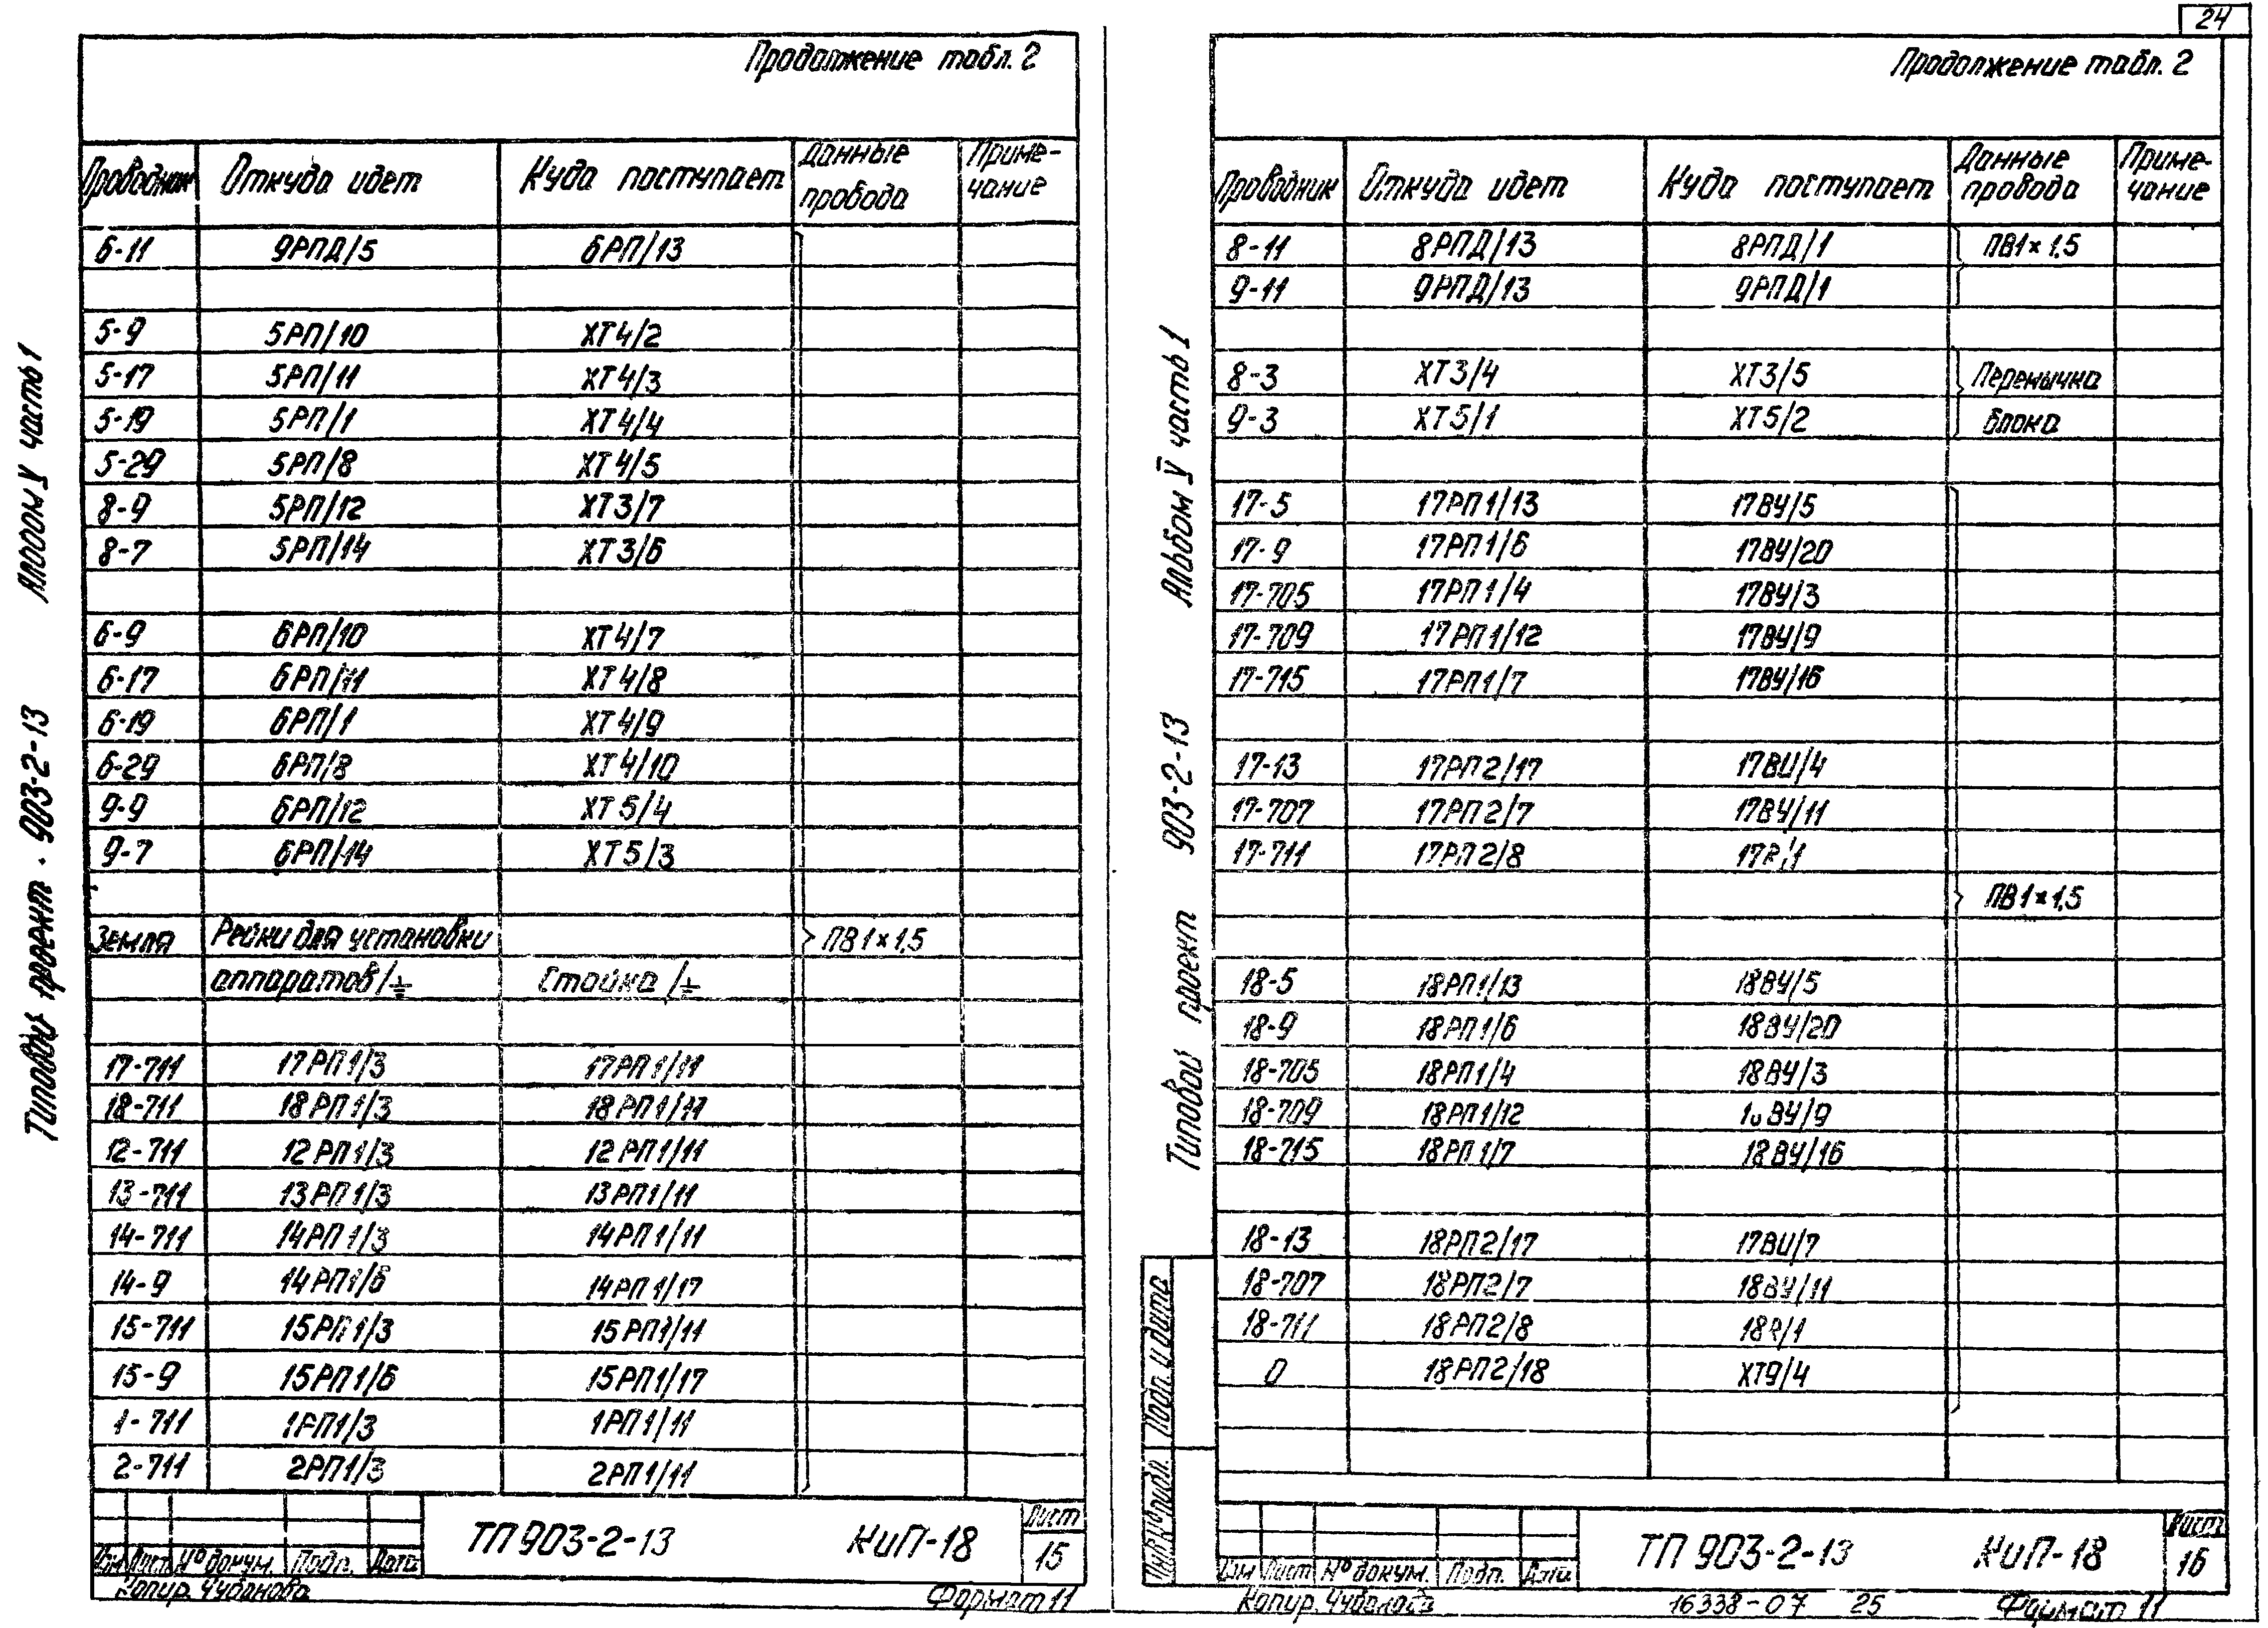 24
Продолжение табл. 2
Проводник Откуда идет Куда поступает Данные провода Приме-чание
6-11 9РПД/5 6РП/13
5-9 5РП/10 ХТ4/2
5-17 5РП/11 ХТ4/3
5-19 5РП/1 ХТ4/4
5-29 5РП/8 ХТ4/5
8-9 5РП/12 ХТ3/7
8-7 5РП/14 ХТ3/6
6-9 6РП/10 ХТ4/7
6-17 6РП/11 ХТ4/8
6-19 6РП/1 ХТ4/9
6-29 6РП/8 ХТ4/10
9-9 6РП/12 ХТ5/4
9-7 6РП/14 ХТ5/3
Земля Рейки для установки ПВ1×1,5
аппаратов/⏚ Стойка/⏚
17-711 17РП1/3 17РП1/11
18-711 18РП1/3 18РП1/11
12-711 12РП1/3 12РП1/11
13-711 13РП1/3 13РП1/11
14-711 14РП1/3 14РП1/11
14-9 14РП1/6 14РП1/17
15-711 15РП1/3 15РП1/11
15-9 15РП1/6 15РП1/17
1-711 1РП1/3 1РП1/11
2-711 2РП1/3 2РП1/11
Изм Лист № докум. Подп. Дата
ТП 903-2-13 КиП-18
Лист
15
Копир. Чубанова Формат 11
Типовой проект 903-2-13 Альбом V часть 1
Продолжение табл. 2
Проводник Откуда идет Куда поступает Данные провода Приме-чание
8-11 8РПД/13 8РПД/1 ПВ1×1,5
9-11 9РПД/13 9РПД/1
8-3 ХТ3/4 ХТ3/5 Перемычка
9-3 ХТ5/1 ХТ5/2 блока
17-5 17РП1/13 17ВУ/5
17-9 17РП1/6 17ВУ/20
17-705 17РП1/4 17ВУ/3
17-709 17РП1/12 17ВУ/9
17-715 17РП1/7 17ВУ/16
17-13 17РП2/17 17ВИ/4
17-707 17РП2/7 17ВУ/11
17-711 17РП2/8 17R/1
ПВ1×1,5
18-5 18РП1/13 18ВУ/5
18-9 18РП1/6 18ВУ/20
18-705 18РП1/4 18ВУ/3
18-709 18РП1/12 18ВУ/9
18-715 18РП1/7 18ВУ/16
18-13 18РП2/17 17ВИ/7
18-707 18РП2/7 18ВУ/11
18-711 18РП2/8 18R/1
0 18РП2/18 ХТ9/4
Изм Лист № докум. Подп. Дата
ТП 903-2-13 КиП-18
Лист
16
Копир. Чубанова 16338-07 25 Формат 11
Типовой проект 903-2-13 Альбом V часть 1
Инв № подл. Подп. и дата